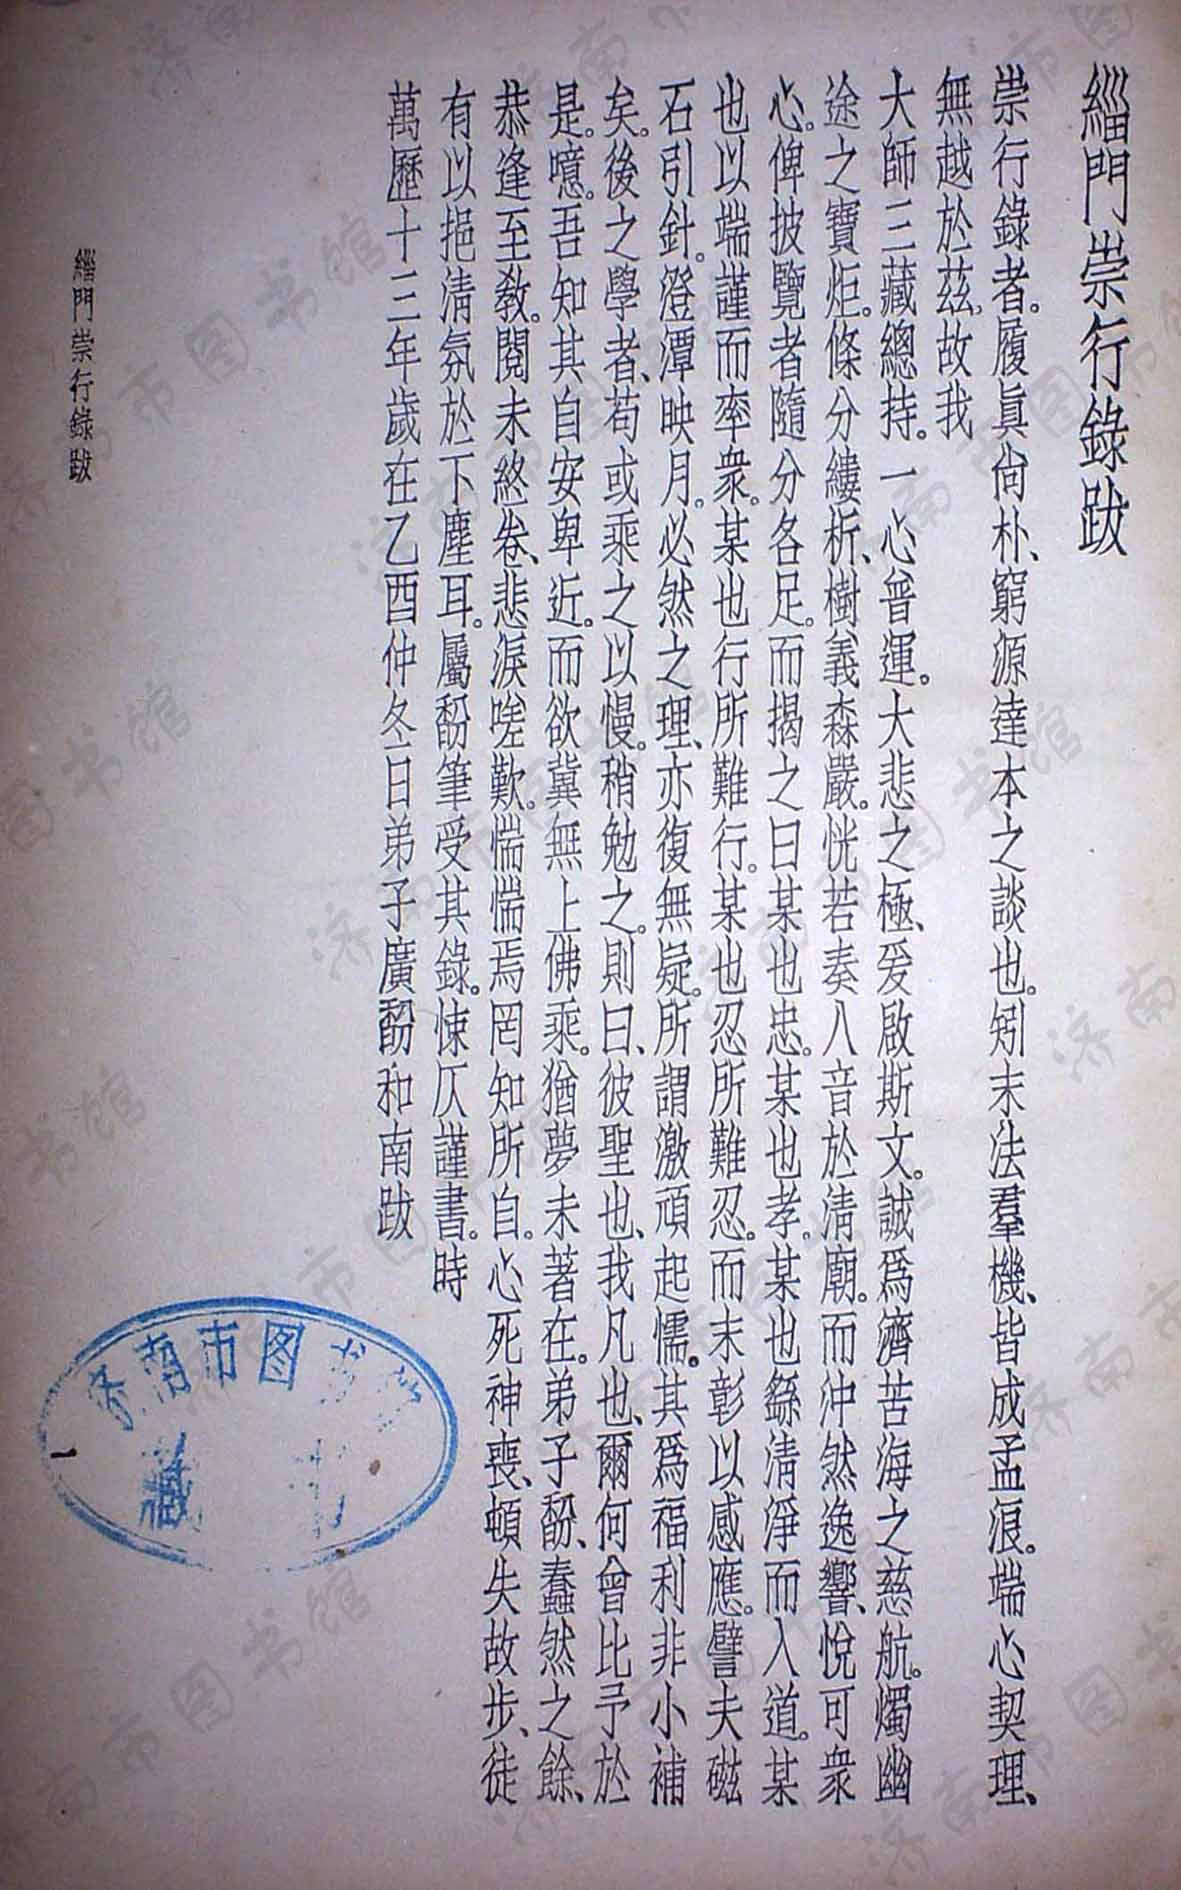 緇門崇行錄跋
崇行錄者。履眞尙朴、窮源達本之談也。矧末法羣機、皆成孟浪。端心契理、
無越於茲。故我
大師三藏總持。一心普運。大悲之極、爰啟斯文。誠爲濟苦海之慈航。燭幽
途之寶炬。條分縷析、樹義森嚴。恍若奏八音於清廟。而沖然逸響、悅可衆
心。俾披覽者隨分各足。而揭之曰某也忠。某也孝。某也繇清淨而入道。某
也以端謹而率衆。某也行所難行。某也忍所難忍。而末彰以感應。譬夫磁
石引針。澄潭映月。必然之理、亦復無疑。所謂激頑起懦。其爲福利非小補
矣。後之學者、苟或乘之以慢。稍勉之。則曰、彼聖也、我凡也、爾何曾比予於
是。噫。吾知其自安卑近。而欲冀無上佛乘。猶夢未著在。弟子翻、蠢然之餘、
恭逢至敎。閱未終卷、悲淚嗟歎。惴惴焉罔知所自。心死神喪、頓失故步、徒
有以挹清氛於下塵耳。屬翻筆受其錄。悚仄謹書。時
萬歷十三年歲在乙酉仲冬日弟子廣翻和南跋
緇門崇行錄跋
一
济南市图书馆
藏书